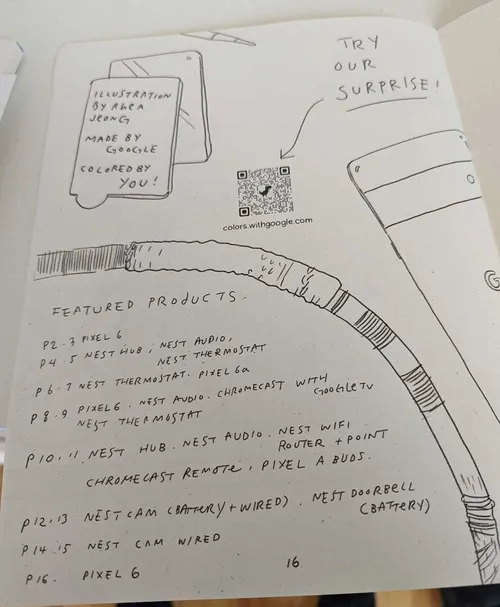 TRY
OUR
SURPRISE!
ILLUSTRATION
BY RHEA
JEONG
MADE BY
GOOGLE
COLORED BY
YOU!
colors.withgoogle.com
FEATURED PRODUCTS.
P2.3 PIXEL 6
P4.5 NEST HUB, NEST AUDIO,
NEST THERMOSTAT
P6.7 NEST THERMOSTAT. PIXEL 6a
P8.9 PIXEL 6. NEST AUDIO. CHROMECAST WITH
GOOGLE TV
NEST THERMOSTAT
P10.11. NEST HUB. NEST AUDIO. NEST WIFI
ROUTER + POINT
CHROMECAST REMOTE, PIXEL A BUDS.
P12.13 NEST CAM (BATTERY + WIRED). NEST DOORBELL
(BATTERY)
P14.15 NEST CAM WIRED
P16. PIXEL 6
16
G